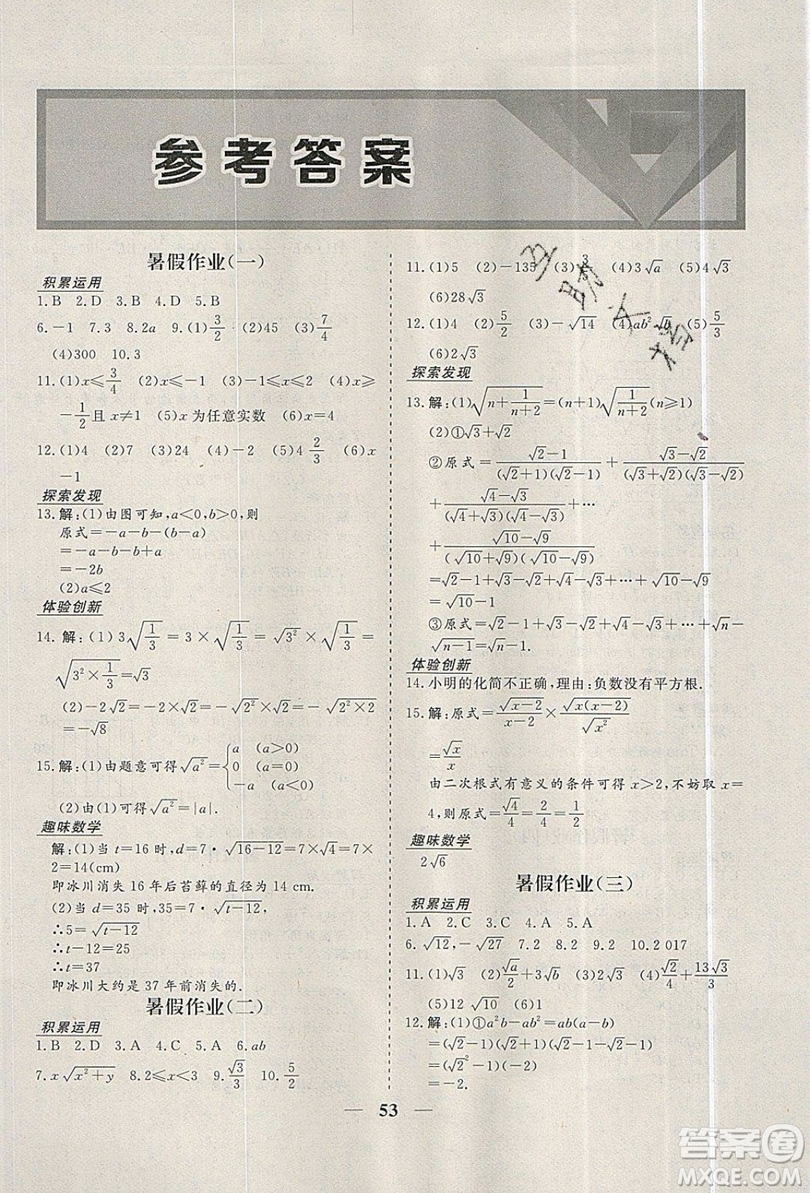 参考答案
暑假作业(一)
积累运用
1.B 2.D 3.A 4.D 5.B
6.-1 7.3 8.2a 9.(1)3/2 (2)45 (3)7/4
(4)300 10.3
11.(1)x≤3/4 (2)x≤3 (3)-1≤x≤2 (4)x≥
-1/2且 x≠1 (5)x 为任意实数 (6)x=4
12.(1)4 (2)7 (3)24 (4)-2 (5)4√3/3 (6)x
-1
探索发现
13.解:(1)由图可知,a<0,b>0,则
原式=-a-b-(b-a)
=-a-b-b+a
=-2b
(2)a≤2
体验创新
14.解:(1)3√(1/3)=3×√(1/3)=√(3²)×√(1/3)=
√(3²×1/3)=√3
(2)-2√2=-2×√2=-√(2²)×√2=-√(2²×2)=
-√8
15.解:(1)由题意可得√(a²)={a (a>0) 0 (a=0) -a (a<0)
(2)由(1)可得√(a²)=|a|.
趣味数学
解:(1)当 t=16 时,7×√(16-12)=7×√4=7×
2=14(cm)
即冰川消失 16 年后苔藓的直径为 14 cm.
(2)当 d=35 时,35=7·√(t-12),
∴5=√(t-12)
∴t-12=25
∴t=37
即冰川大约是 37 年前消失的.
暑假作业(二)
积累运用
1.B 2.D 3.A 4.C 5.A 6.ab
7.x√(x²+y) 8.2≤x<3 9.√3/3 10.5/2
11.(1)5 (2)-135 (4)3√a (5)√3/3
(6)28√3
12.(1)2 (2)5/2 (3)-√14 (4)ab²√b (5)5/3
(6)2√3
探索发现
13.解:(1)√(n+1/(n+2))=(n+1)√(1/(n+2))(n≥1)
(2)①√2-1
②原式=(√2-1)/((√2+1)(√2-1))+(√3-√2)/((√3+√2)(√3-√2))
+(√4-√3)/((√4+√3)(√4-√3))+…+
(√10-√9)/((√10+√9)(√10-√9))
=√2-1+√3-√2+√4-√3+…+√10-√9
=√10-1
③原式=√2-1+√3-√2+√4-√3+…+√n
-√(n-1)=√n-1.
体验创新
14.小明的化简不正确,理由:负数没有平方根.
15.解:原式=√(x-2)/(x-2)×√(x(x-2))/√(x²)
=√x/x
由二次根式有意义的条件可得 x>2,不妨取 x=
4,则原式=√4/4=2/4=1/2
趣味数学
2√6
暑假作业(三)
积累运用
1.A 2.C 3.C 4.A 5.A
6.√12,-√27 7.2 8.2 9.2 10.2 017
11.(1)√3 (2)√a/2+2√3/3 (3)1 (4)√2/4+13√3/3
(5)12 √10 (6)1
12.解:(1)①a²b-ab²=ab(a-b)
=(√2-1)(√2+1)(√2-1-√2-1)
=(√2-1)(√2+1)(-2)
=-2.
53
互助文档
答案圈
MXQE.COM